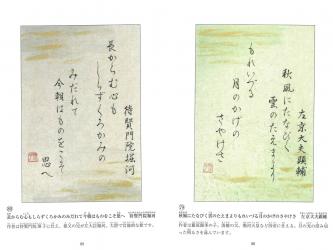 左京大夫顕輔
秋風にたなびく
雲のたえまより
もれいづる
月のかげの
さやけさ
秋風にたなびく雲のたえまよりもれいづる月のかげのさやけさ 左京大夫顕輔
待賢門院堀河
長からむ心も
しらずくろかみの
みだれて
今朝はものをこそ
思へ
長からむ心もしらずくろかみのみだれて今朝はものをこそ思へ 待賢門院堀河